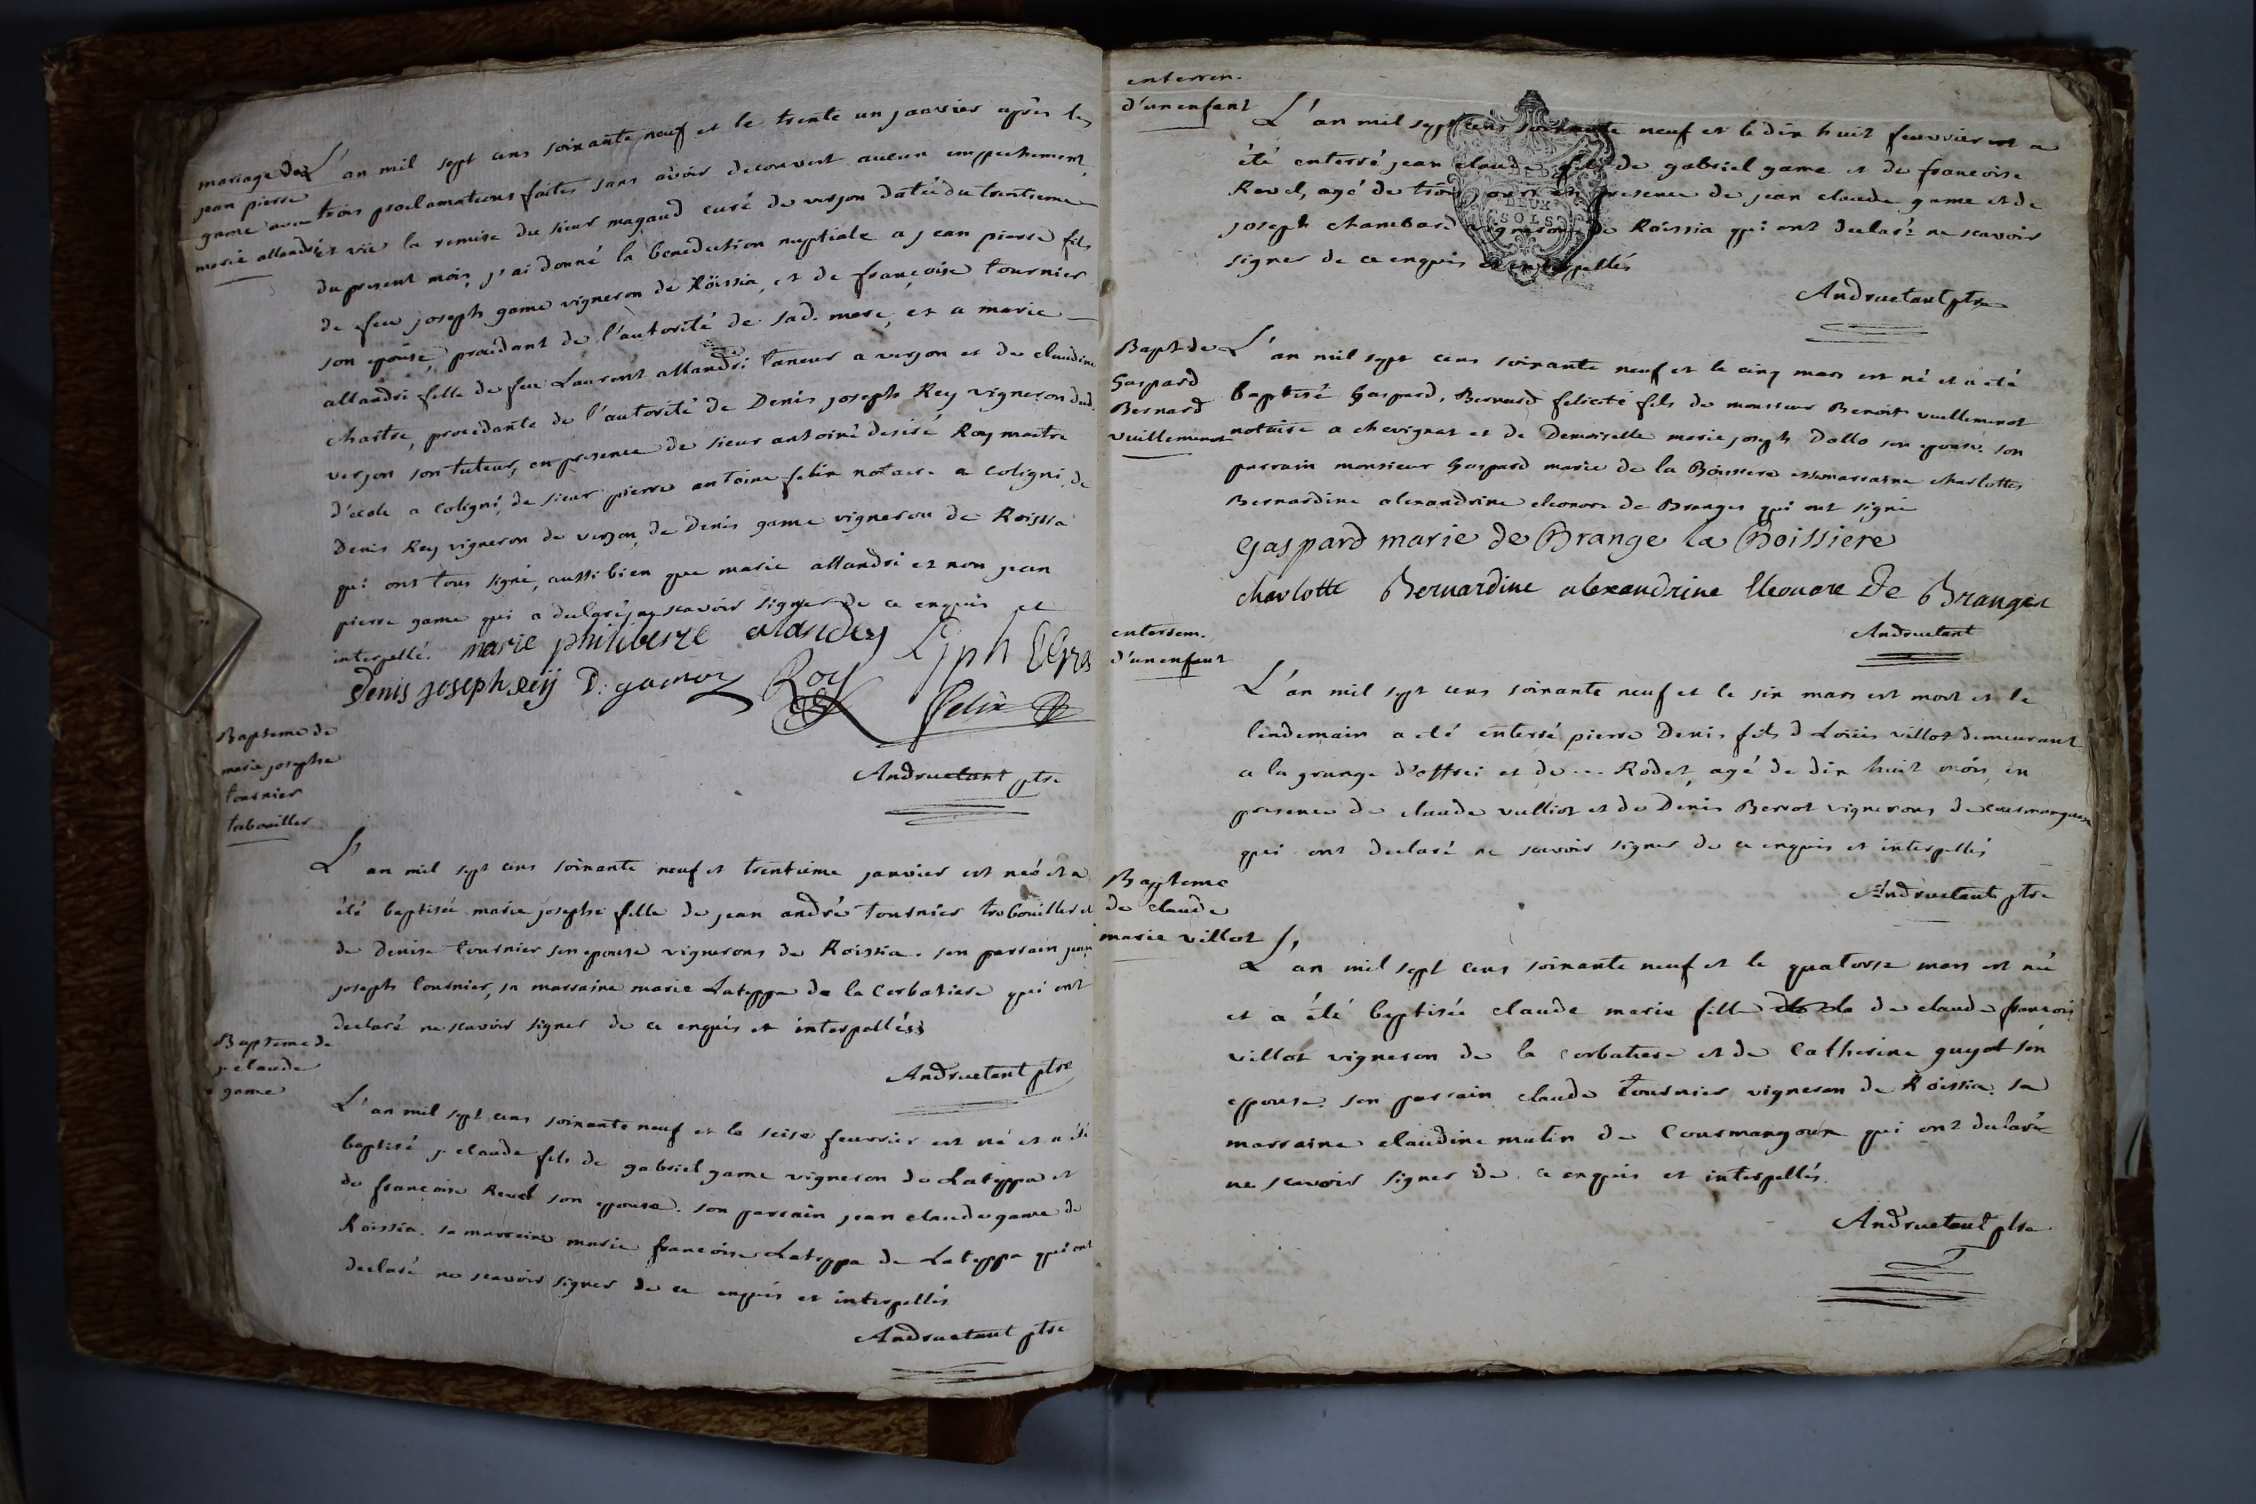 mariage de
jean pierre
game avec
marie allandri
L'an mil sept cens soixante neuf et le trente un janvier après les
trois proclamations faites sans avoir decouvert aucun empechement
et vue la remise du sieur magaud curé de verjon datée du trentieme
du present mois, j'ai donné la benediction nuptiale a jean pierre fils
de feu joseph game vigneron de Roissia, et de françoise tournier
son epouse, procedant de l'autorité de sad. mere, et a marie
allandri fille de feu Laurent allandri taneur a verjon et de claudine
chaître, procedante de l'autorité de Denis joseph Rey vigneron dud.
verjon son tuteur, en presence de sieur antoine desiré Roy maitre
d'école a coligni, de sieur pierre antoine felix notaire a coligni, de
Denis Rey vigneron de verjon, de Denis game vigneron de Roissia
qui ont tous signé, aussi bien que marie allandri et non jean
pierre game qui a declaré ne scavoir signer de ce enquis et
interpellé. marie philiberte alandry
Denis joseph reÿ D. game Roy felix
Andruetant ptre
Bapteme de
marie josephe
tournier
trebouillet
L'an mil sept cens soixante neuf et trentieme janvier est neé et a
été baptisée marie josephe fille de jean andré tournier trebouillet et
de Denise tournier son epouse vignerons de Roissia. son parrain jean
joseph tournier, sa marraine marie Lateppe de la Corbatiere qui ont
declaré ne scavoir signer de ce enquis et interpellés
Andruetant ptre
Bapteme de
j. claude
game
L'an mil sept cens soixante neuf et le seise feuvrier est né et a été
baptisé j. claude fils de gabriel game vigneron de Lateppe et
de françoise Revel son epouse. son parrain jean claude game de
Roissia. sa marraine marie françoise Lateppe de Lateppe qui ont
declaré ne scavoir signer de ce enquis et interpellés
Andruetant ptre
enterrem.
d'un enfant
L'an mil sept cens soixante neuf et le dix huit feuvrier a
été enterré jean claude fils de gabriel game et de françoise
Revel, agé de trois jours en presence de jean claude game et de
joseph chambard vignerons de Roissia qui ont declaré ne scavoir
signer de ce enquis et interpellés
DEUX
SOLS
Andruetant ptre
Bapt. de
Gaspard
Bernard
vuillemenot
L'an mil sept cens soixante neuf et le cinq mars est né et a été
baptisé Gaspard, Bernard felicité fils de monsieur Benoit vuillemenot
notaire a chevignat et de Demoiselle marie joseph Dallo son epouse. son
parrain monsieur Gaspard marie de la Boissiere et sa marraine charlotte
Bernardine alexandrine eleonore de Branges qui ont signé
Gaspard marie de Brange la Boissiere
charlotte Bernardine alexandrine Eleonore De Branges
Andruetant
enterrem.
d'un enfant
L'an mil sept cens soixante neuf et le six mars est mort et le
lendemain a été enterré pierre Denis fils de Loüis villot demeurant
a la grange d'offrei et de ... Rodet, agé de dix huit mois, en
presence de claude vulliot et de Denis Berrot vignerons de courmangoux
qui ont declaré ne scavoir signer de ce enquis et interpellés
Andruetant ptre
Bapteme
de claude
marie villot
L'an mil sept cens soixante neuf et le quatorse mars est née
et a été baptisée claude marie fille de claude françois
villot vigneron de la corbatiere et de Catherine guyot son
epouse. son parrain claude tournier vigneron de Roissia. sa
marraine claudine mutin de Courmangoux qui ont declaré
ne scavoir signer de ce enquis et interpellés.
Andruetant ptre